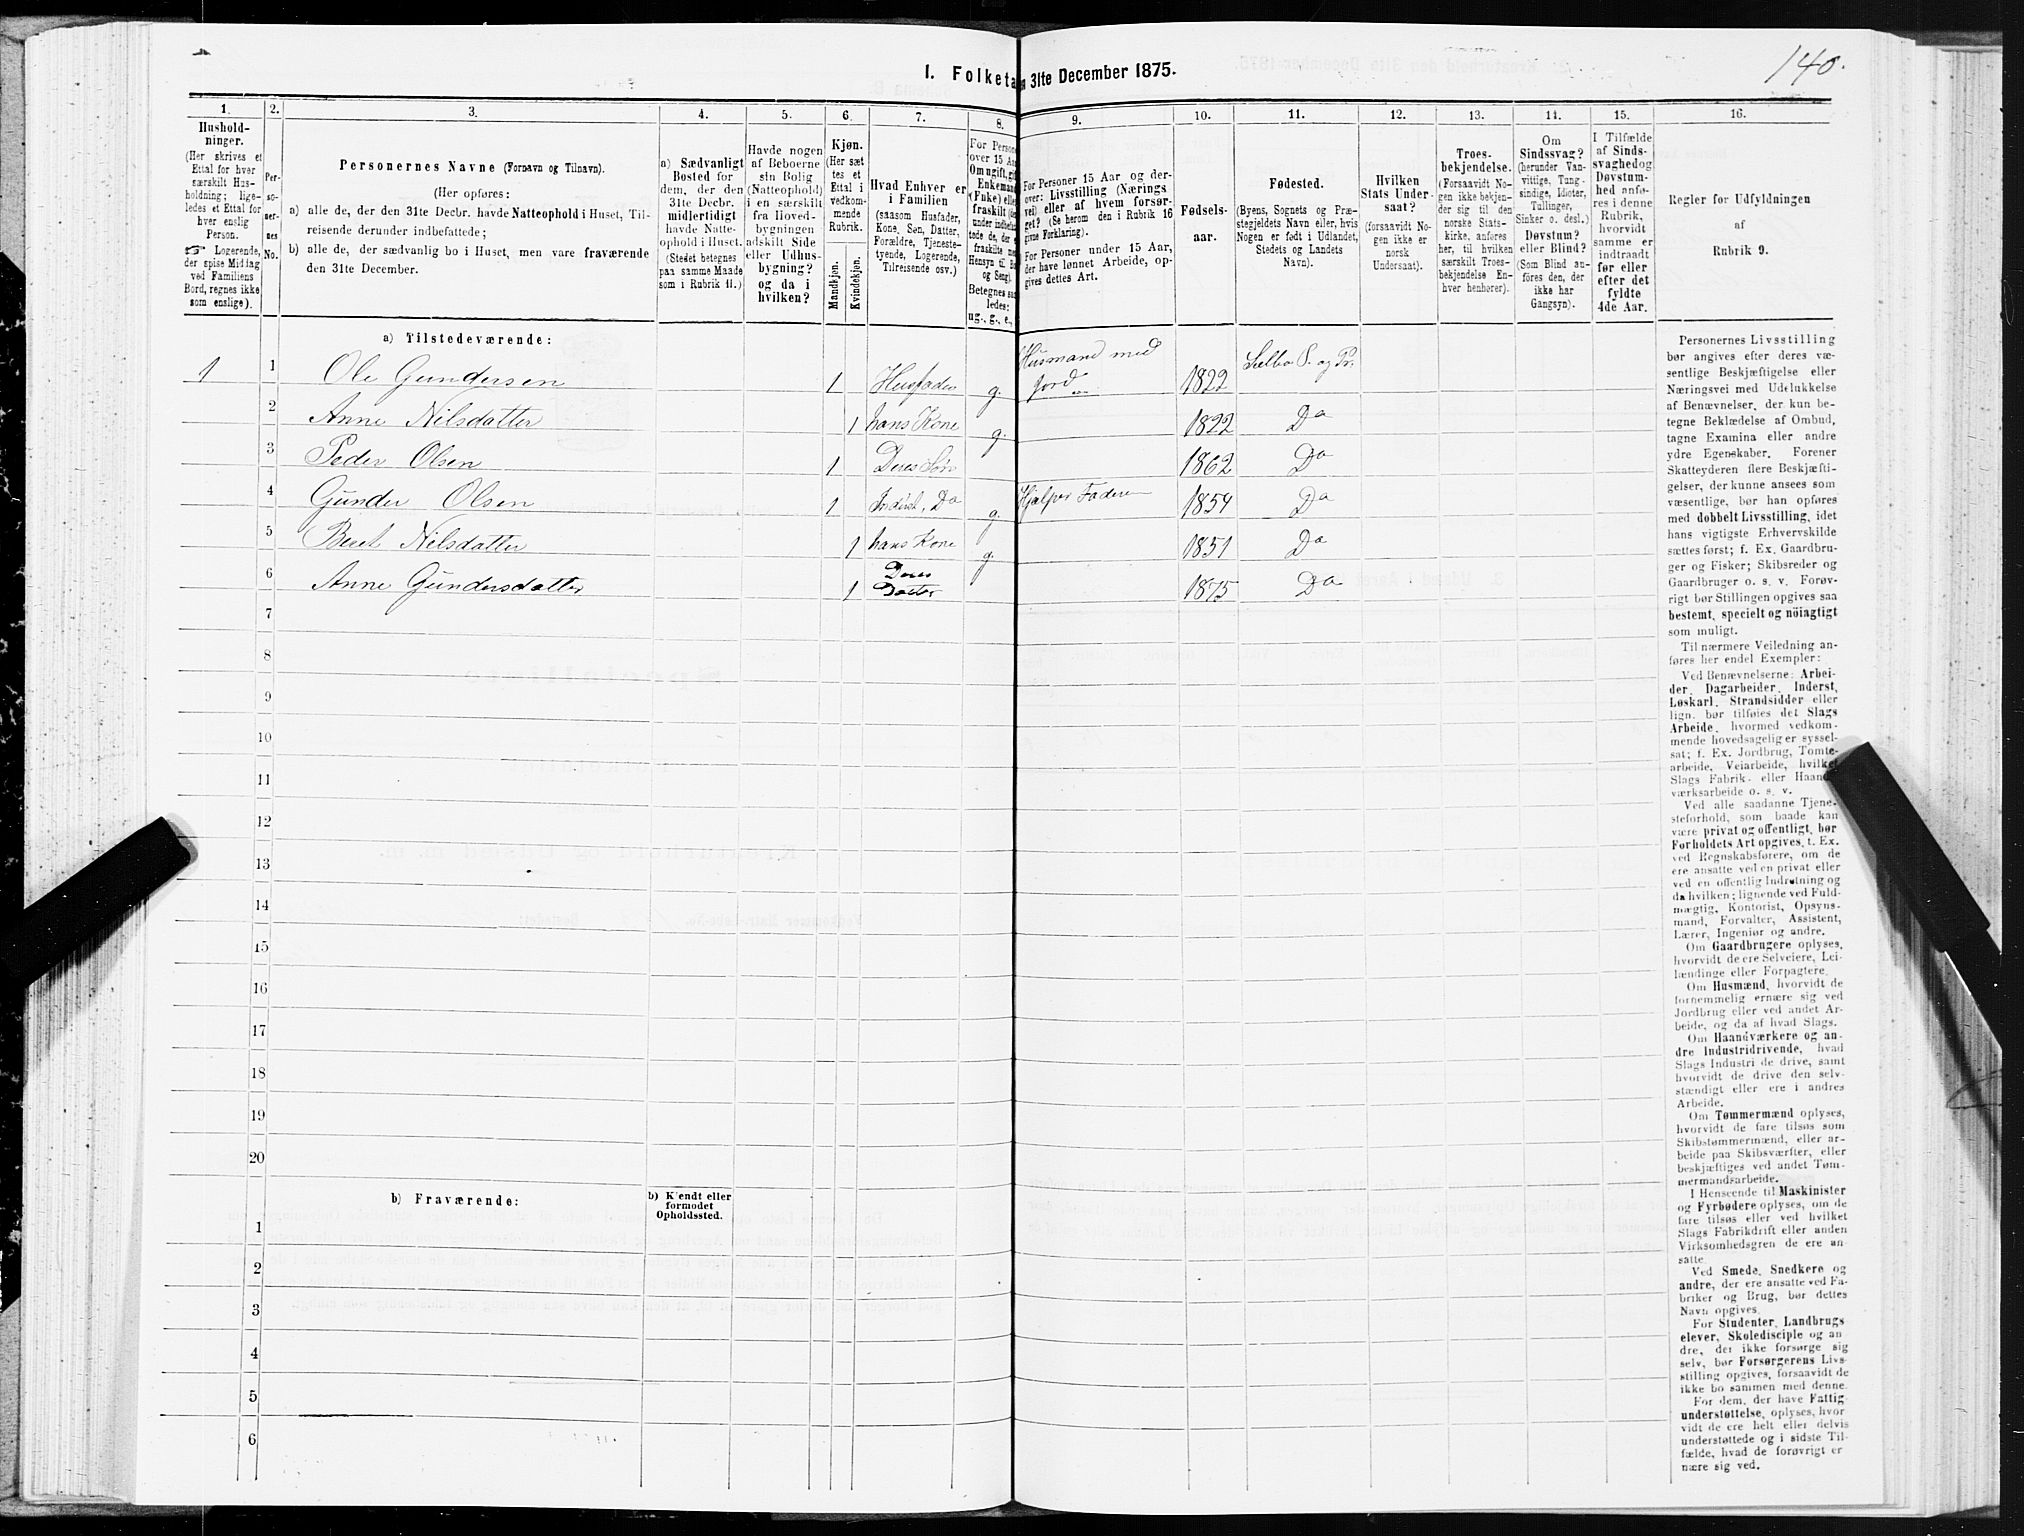 140.
I. Folketæ
n 31te December 1875.
1.
2.
3.
4.
5.
6.
7.
8.
9.
10.
11.
12.
13.
14.
15.
16.
Hushold-
ninger.
(Her skrives et
Ettal for hver
særskilt Hus-
holdning; lige-
ledes et Ettal for
hver enslig
Person.
☞ Logerende,
der spise Middag
ved Familiens
Bord, regnes ikke
som enslige).
Per-
so-
ner-
nes
No.
Personernes Navne (Fornavn og Tilnavn).
(Her opføres:
a) alle de, der den 31te Decbr. havde Natteophold i Huset, Til-
reisende derunder indbefattede;
b) alle de, der sædvanlig bo i Huset, men vare fraværende
den 31te December.
a) Sædvanligt
Bosted for
dem, der den
31te Decbr.
midlertidigt
havde Natte-
ophold i Huset.
(Stedet betegnes
paa samme Maade
som i Rubrik 11.)
Havde nogen
af Beboerne
sin Bolig
(Natteophold)
i en særskilt
fra Hoved-
bygningen
adskilt Side
eller Udhus-
bygning?
og da i
hvilken?
Kjøn.
(Her sæt-
tes et
Ettal i
vedkom-
mende
Rubrik.
Mandkjøn.
Kvindekjøn.
Hvad Enhver er
i Familien
(saasom Husfader,
Kone, Søn, Datter,
Forældre, Tjeneste-
tyende, Logerende,
Tilreisende osv.)
For Person
over 15 Aa
Om ugift, gif
Enkemand
(Fuke) elle
fraskilt (de
under indbefat
tede de, der e
fraskilte med
Hensyn til Bo
og Seng).
Betegnes saa
ledes:
ug., g., e.,
For Personer 15 Aar og der-
over: Livsstilling (Nærings
vei) eller af hvem forsør-
get? (Se herom den i Rubrik 16
givne Forklaring).
For Personer under 15 Aar,
der have lønnet Arbeide, op-
gives dettes Art.
Fødsels-
aar.
Fødested.
(Byens, Sognets og Præ-
stegjeldets Navn eller, hvis
Nogen er født i Udlandet,
Stedets og Landets
Navn).
Hvilken
Stats Under-
saat?
(forsaavidt No-
gen ikke er
norsk
Undersaat).
Troes-
bekjendelse.
(Forsaavidt No-
gen ikke bekjen-
der sig til den
norske Stats-
kirke, anføres
her, til hvilken
særskilt Troes-
bekjendelse En-
hver henhører).
Om
Sindssvag?
(herunder Van-
vittige, Tung-
sindige, Idioter,
Tullinger,
Sinker o. desl.)
Døvstum?
eller Blind?
(Som Blind an-
føres den, der
ikke har
Gangsyn).
I Tilfælde
af Sinds-
svaghed og
Døvstum-
hed anfø-
res i denne
Rubrik,
hvorvidt
samme er
indtraadt
før eller
efter det
fyldte
4de Aar.
Regler for Udfyldningen
af
Rubrik 9.
a) Tilstedeværende:
1 1 Ole Gundersen 1 Husfader g. Husmand med
Jord 1822 Selbo S. og Pr.
2 Anne Nilsdatter 1 hans Kone g. 1822 Do
3 Peder Olsen 1 Deres Søn 1862 Do
4 Gunder Olsen 1 Inderst, Do g. Hjælper Faderen 1859 Do
5 Beret Nilsdatter 1 hans Kone g. 1851 Do
6 Anne Gundersdatter 1 Deres
Datter 1875 Do
7
8
9
10
11
12
13
14
15
16
17
18
19
20
b) Fraværende:
b) Kjendt eller
formodet
Opholdssted.
1
2
3
4
5
6
Personernes Livsstilling
bør angives efter deres væ-
sentlige Beskjæftigelse eller
Næringsvei med Udelukkelse
af Benævnelser, der kun be-
tegne Beklædelse af Ombud,
tagne Examina eller andre
ydre Egenskaber. Forener
Skatteyderen flere Beskjæfti-
gelser, der kunne ansees som
væsentlige, bør han opføres
med dobbelt Livsstilling, idet
hans vigtigste Erhvervskilde
sættes først; f. Ex. Gaardbru-
ger og Fisker; Skibsreder og
Gaardbruger o. s. v. Forøv-
rigt bør Stillingen opgives saa
bestemt, specielt og nöiagtigt
som muligt.
Til nærmere Veiledning an-
føres her endel Exempler:
Ved Benævnelserne: Arbei-
der, Dagarbeider, Inderst,
Løskarl, Strandsidder eller
lign. bør tilføies det Slags
Arbeide, hvormed vedkom-
mende hovedsagelig er syssel-
sat; f. Ex. Jordbrug, Tomte-
arbeide, Veiarbeide, hvilket
Slags Fabrik- eller Haand-
værksarbeide o. s. v.
Ved alle saadanne Tjene-
steforhold, som baade kan
være privat og offentligt, bør
Forholdets Art opgives, f. Ex.
ved Regnskabsførere, om de
ere ansatte ved en privat eller
ved en offentlig Indretning og
da hvilken; lignende ved Fuld-
mægtig, Kontorist, Opsyns-
mand, Forvalter, Assistent,
Lærer, Ingeniør og andre.
Om Gaardbrugere oplyses,
hvorvidt de ere Selveiere, Lei-
lændinge eller Forpagtere.
Om Husmænd, hvorvidt de
fornemmelig ernære sig ved
Jordbrug eller ved andet Ar-
beide, og da af hvad Slags.
Om Haandværkere og an-
dre Industridrivende, hvad
Slags Industri de drive, samt
hvorvidt de drive den selv-
stændigt eller ere i andres
Arbeide.
Om Tømmermænd oplyses,
hvorvidt de fare tilsøs som
Skibstømmermænd, eller ar-
beide paa Skibsværfter, eller
beskjæftiges ved andet Tøm-
mermandsarbeide.
I Henseende til Maskinister
og Fyrbødere oplyses, om de
fare tilsøs eller ved hvilket
Slags Fabrikdrift eller anden
Virksomhedsgren de ere an-
satte.
Ved Smede, Snedkere og
andre, der ere ansatte ved Fa-
briker og Brug, bør dettes
Navn opgives.
For Studenter, Landbrugs
elever, Skoledisciple og an-
dre, der ikke forsørge sig
selv, bør Forsørgerens Livs-
stilling opgives, forsaavidt de
ikke bo sammen med denne.
For dem, der have Fattig
understøttelse, oplyses, hvor
vidt de ere helt eller delvis
understøttede og i sidste Til-
fælde, hvad de forøvrigt er
nære sig ved.